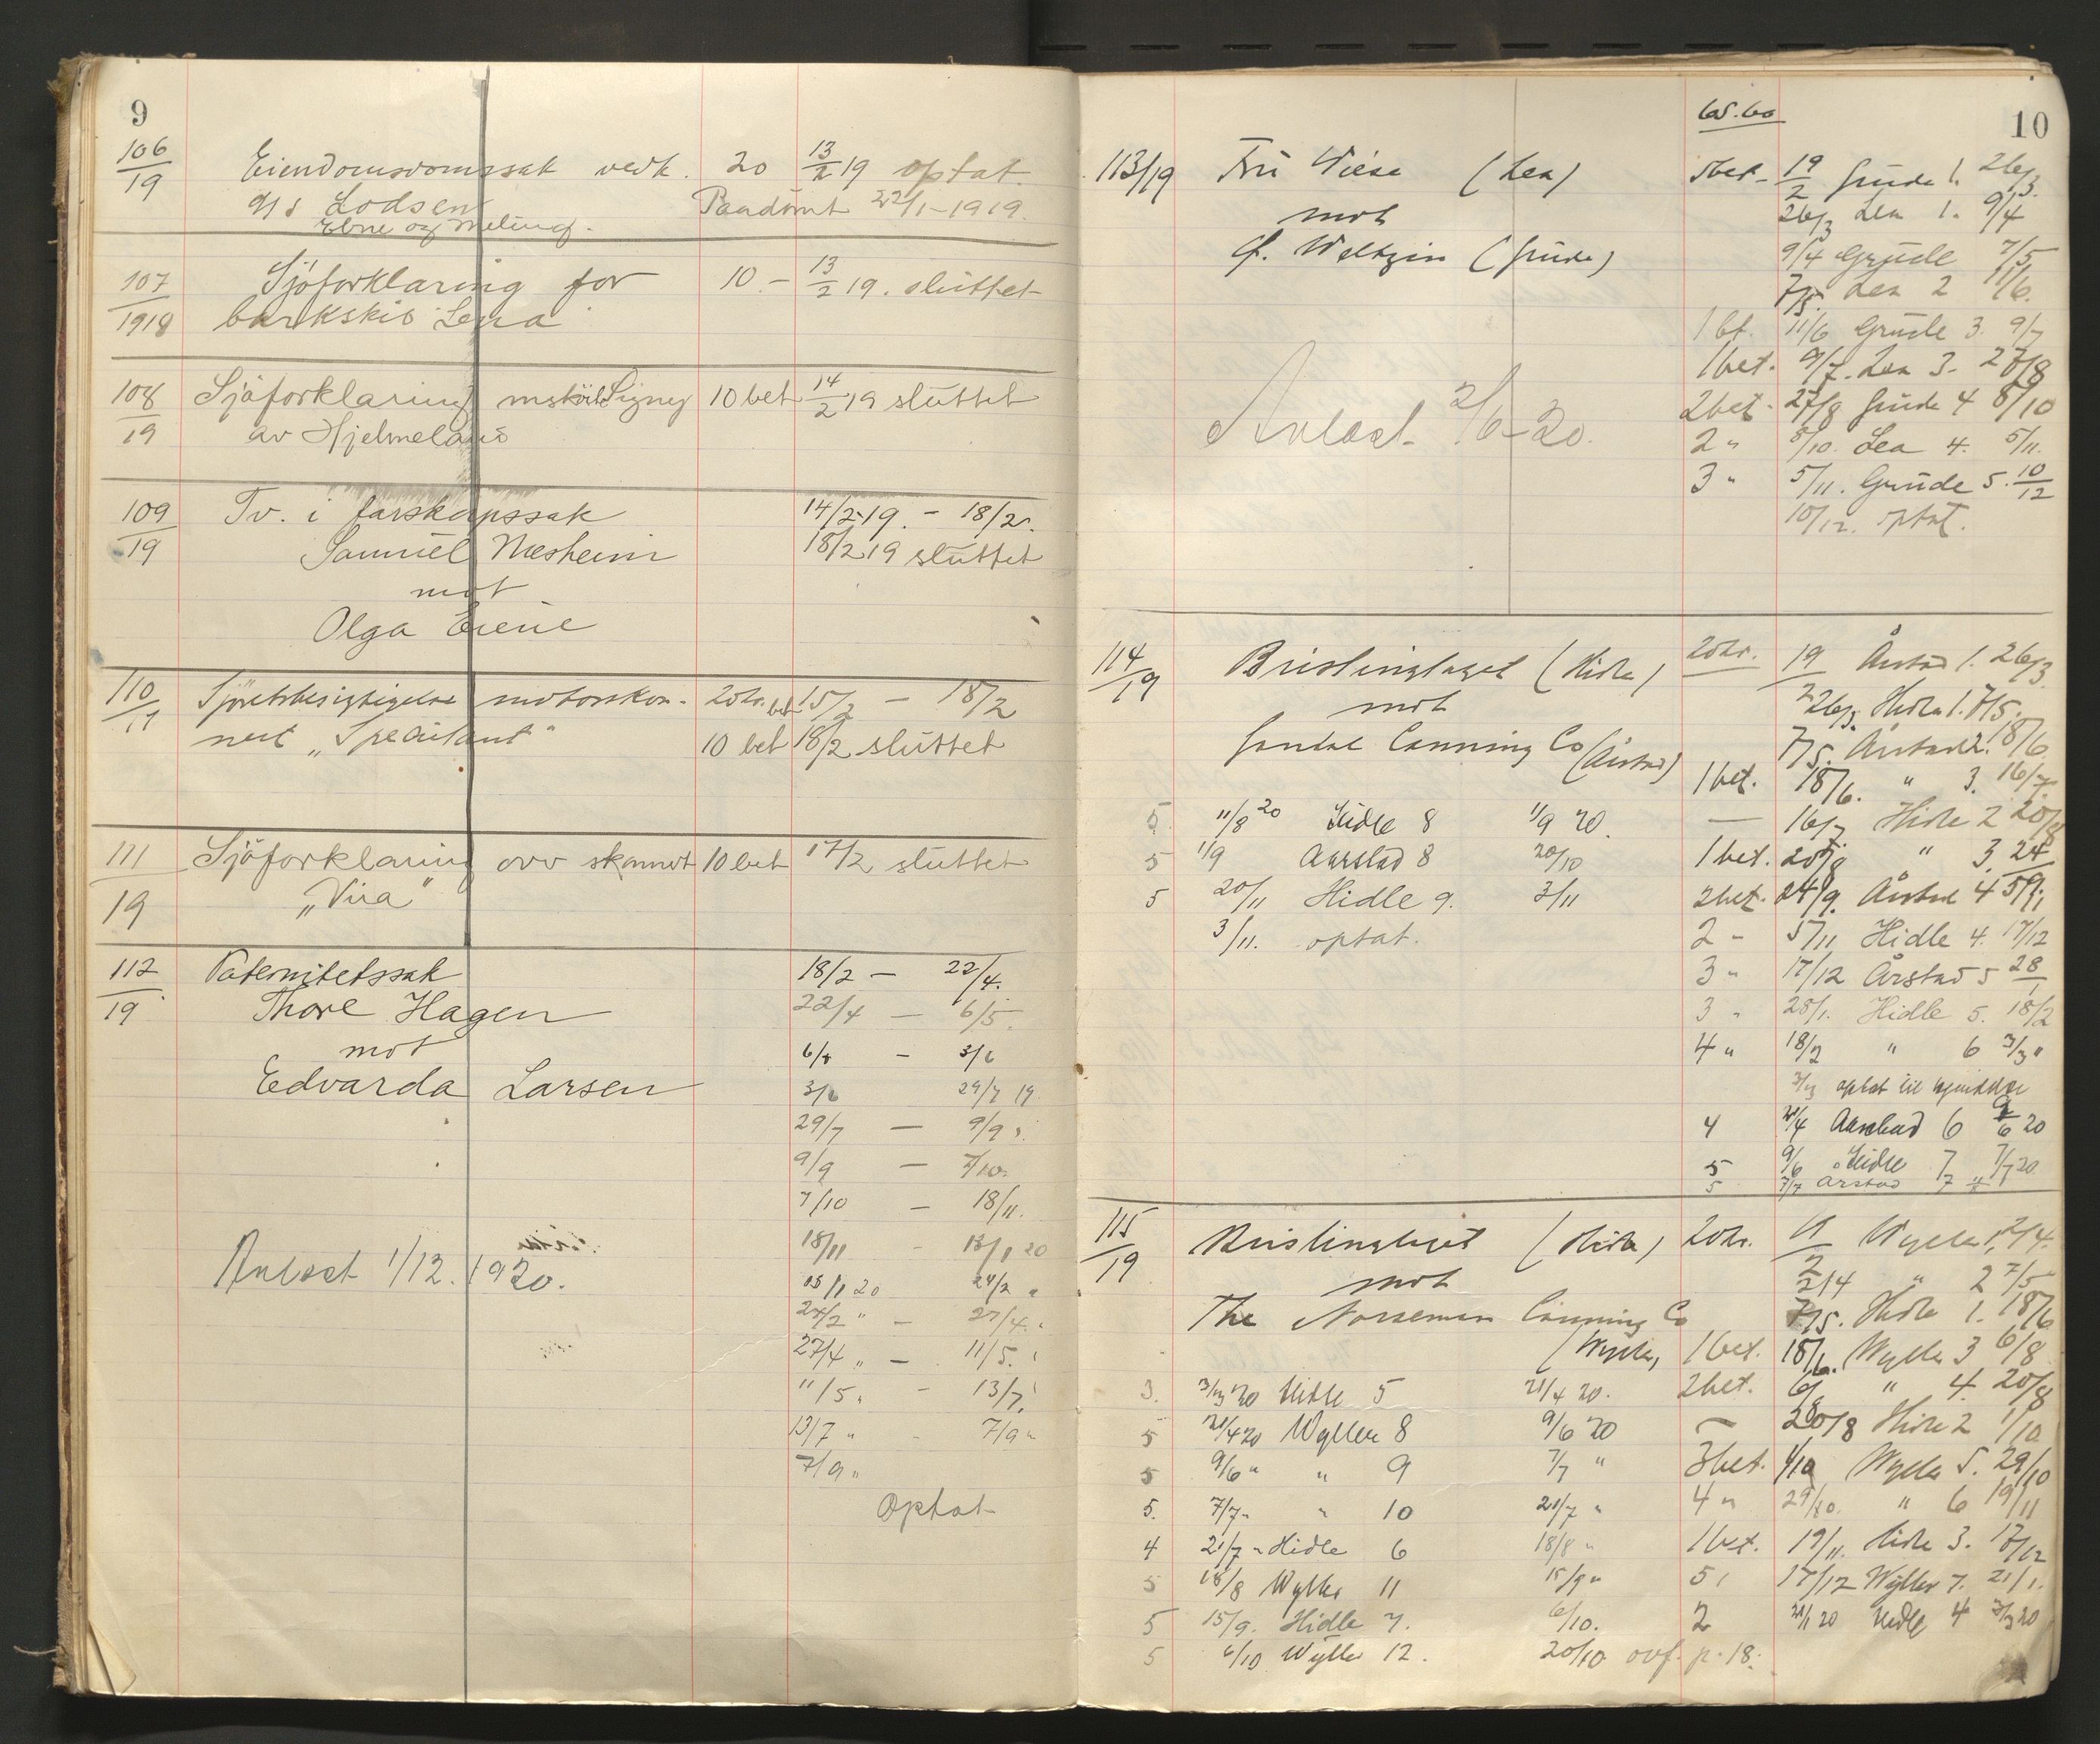 9
106/19 Eiendomsdomssak vedk. 20 13/2 19 optat.
Lodsen Paadömt 22/1-1919.
Ebne og Meling.
107/1918 Sjöforklaring for 10.- 13/2 19. sluttet
barkskib "Lena"
108/19 Sjöforklaring msköit Signy 10 bet 14/2 19 sluttet
av Hjelmeland
109/19 Tv. i farskapssak 14/2-19. - 18/2.
Samuel Næsheim 18/2 19 sluttet
mot
Olga Eiene
110/19 Sjöretsbesigtigelse motorskon- 20 kr. bet 15/2 - 18/2
nert 10 bet 18/2 sluttet
111/19 Sjöforklaring ovv 10 bet 17/2 sluttet
112/19 Paternitetssak 18/2 - 22/4.
Thore Hagen 22/4 - 6/5.
mot 6/5 - 3/6
Edvarda Larsen 3/6 29/7 19
29/7 - 9/9 "
9/9 - 7/10.
7/10 - 18/11.
18/11 - 13/1 20
Avlæst 1/12. 1920.
13/1 20 24/2 "
24/2 " - 27/4. "
27/4 " - 11/5. "
11/5. - 13/7.
13/7 " - 7/9 "
7/9 "
Optat
10
65.60
113/19 Fru Wiese (Lea) 1 bet. 19/2 Grude 1. 26/3.
mot 26/3 Lea 1. 9/4
Weltzin (Grude) 9/4 Grude 7/5
7/5. Lea 2 11/6.
1 bt. 11/6 Grude 3. 9/7
1 bet. 9/7. Lea 3. 27/8
Avlæst 2/6-20. 2 bet. 27/8 Grude 4 8/10
2 " 8/10. Lea 4. 5/11.
3 " 5/11. Grude 5. 10/12
10/12. optat.
114/19 Brislinglaget (Hidle) 20 kr. 19/2 Årstad 1. 26/3.
mot 26/3. Hidle 1. 7/5.
Canning Co (Årstad) 7/5. Årstad 2. 18/6
1 bet. 18/6. " 3. 16/7.
5 11/8 20 Hidle 8 1/9 20. — 16/7 Hidle 2 20/8
5 1/9 Aarstad 8 20/10 1 bet. 20/8 " 3. 24/9
5 20/11 Hidle 9. 3/11 2 bet. 24/9. Årstad 4 5/11
3/11. optat. 2 - 5/11 Hidle 4. 17/12
3 " 17/12 Årstad 5 28/1
3 " 28/1. Hidle 5. 18/2
4 " 18/2 " 6 3/3 "
3/3 optat til
4 21/4 Aarstad 6 9/6 20
5 9/6 Hidle 7 7/7 20
5 7/7 Årstad 7
115/19 Brislinglaget (Hidle) 20 kr. 19/2 Wyller 1. 2/4.
mot 2/4 " 2 7/5
The Norseman Canning Co 7/5. Hidle 1. 18/6
(Wyller) 1 bet. 18/6. Wyller 3 6/8
3. 3/3 20 Hidle 5 21/4 20. 2 bet. 6/8 " 4. 20/8
5 21/4 20 Wyller 8 9/6 20 — 20/8 Hidle 2 1/10
5 9/6 " " 9 7/7 " 3 bet. 1/10 Wyller 5. 29/10
5. 7/7 " " 10 21/7 " 4 " 29/10. " 6 19/11
4 21/7 " Hidle 6 18/8 " 1 bet. 19/11. Hidle 3. 17/12
5 18/8 Wyller 11 15/9 " 5 " 17/12 Wyller 7. 21/1.
5 15/9. Hidle 7. 6/10. 2 21/1 20 Hidle 4 3/3 20
5 6/10 Wyller 12. 20/10 ovf. p. 18.